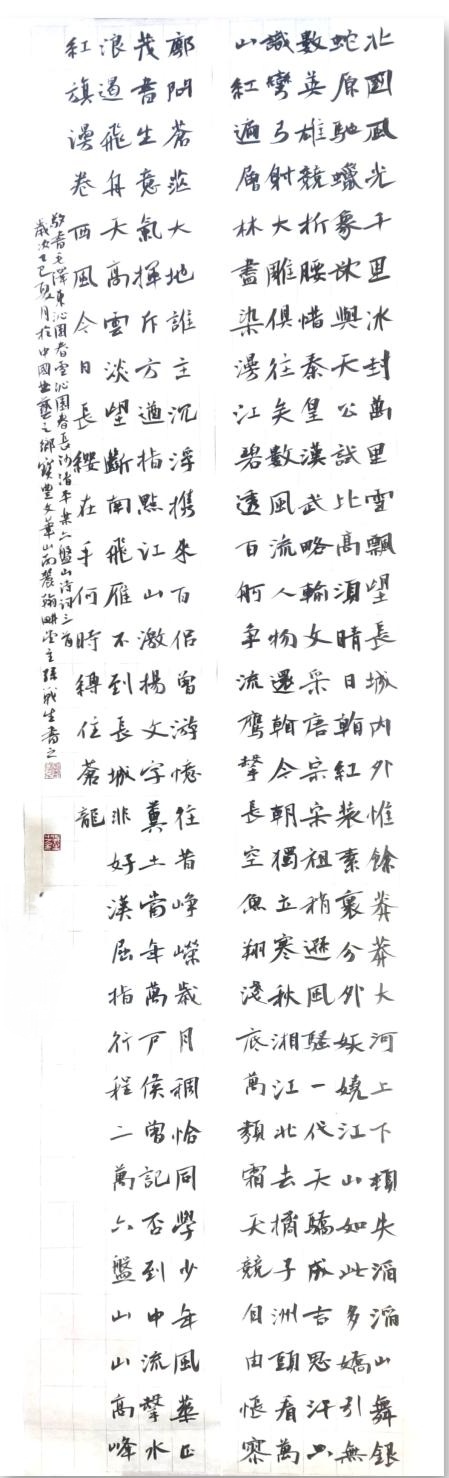 北國風光千里冰封萬里雪飄望長城內外惟餘莽莽大河上下頓失滔滔山舞銀
蛇原馳蠟象欲與天公試比高須晴日翰紅裝素裹分外妖嬈江山如此多嬌引無
數英雄競折腰惜秦皇漢武略輸文采唐宗宋祖稍遜風騷一代天驕成吉思汗只
識彎弓射大雕俱往矣數風流人物還翰今朝獨立寒秋湘江北去橘子洲頭看萬
山紅遍層林盡染漫江碧透百舸爭流鷹擊長空魚翔淺底萬類霜天競自由悵寥
廓問蒼茫大地誰主沉浮攜來百侶曾游憶往昔崢嶸歲月稠恰同學少年風華正
茂書生意氣揮斥方遒指點江山激揚文字糞土當年萬戶侯曾記否到中流擊水
浪遏飛舟天高雲淡望斷南飛雁不到長城非好漢屈指行程二萬六盤山山高峰
紅旗漫卷西風今日長纓在手何時縛住蒼龍
敬書毛澤東沁園春雪沁園春長沙清平樂六盤山詩詞三首
歲次乙巳夏月於中國曲藝之鄉寶豐文華山農翰畊堂主張戰生書之